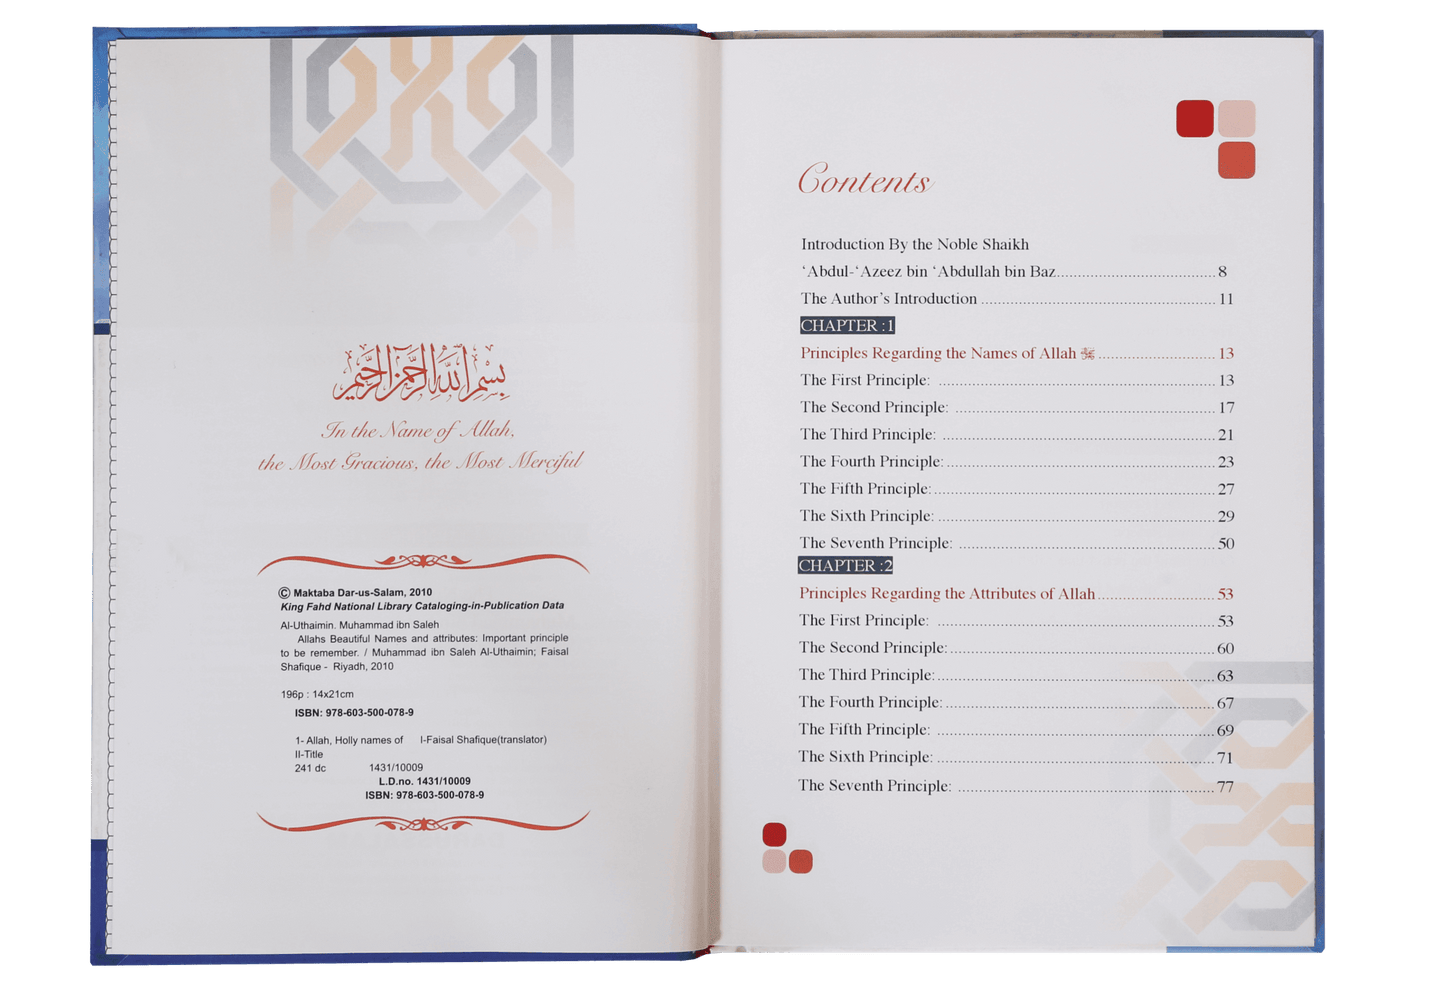 بسم الله الرحمن الرحيم
In the Name of Allah,
the Most Gracious, the Most Merciful
© Maktaba Dar-us-Salam, 2010
King Fahd National Library Cataloging-in-Publication Data
Al-Uthaimin. Muhammad ibn Saleh
Allahs Beautiful Names and attributes: Important principle
to be remember. / Muhammad ibn Saleh Al-Uthaimin; Faisal
Shafique - Riyadh, 2010
196p : 14x21cm
ISBN: 978-603-500-078-9
1- Allah, Holly names of I-Faisal Shafique(translator)
II-Title
241 dc 1431/10009
L.D.no. 1431/10009
ISBN: 978-603-500-078-9
Contents
Introduction By the Noble Shaikh
‘Abdul-‘Azeez bin ‘Abdullah bin Baz 8
The Author’s Introduction 11
CHAPTER :1
Principles Regarding the Names of Allah 13
The First Principle: 13
The Second Principle: 17
The Third Principle: 21
The Fourth Principle: 23
The Fifth Principle: 27
The Sixth Principle: 29
The Seventh Principle: 50
CHAPTER :2
Principles Regarding the Attributes of Allah 53
The First Principle: 53
The Second Principle: 60
The Third Principle: 63
The Fourth Principle: 67
The Fifth Principle: 69
The Sixth Principle: 71
The Seventh Principle: 77